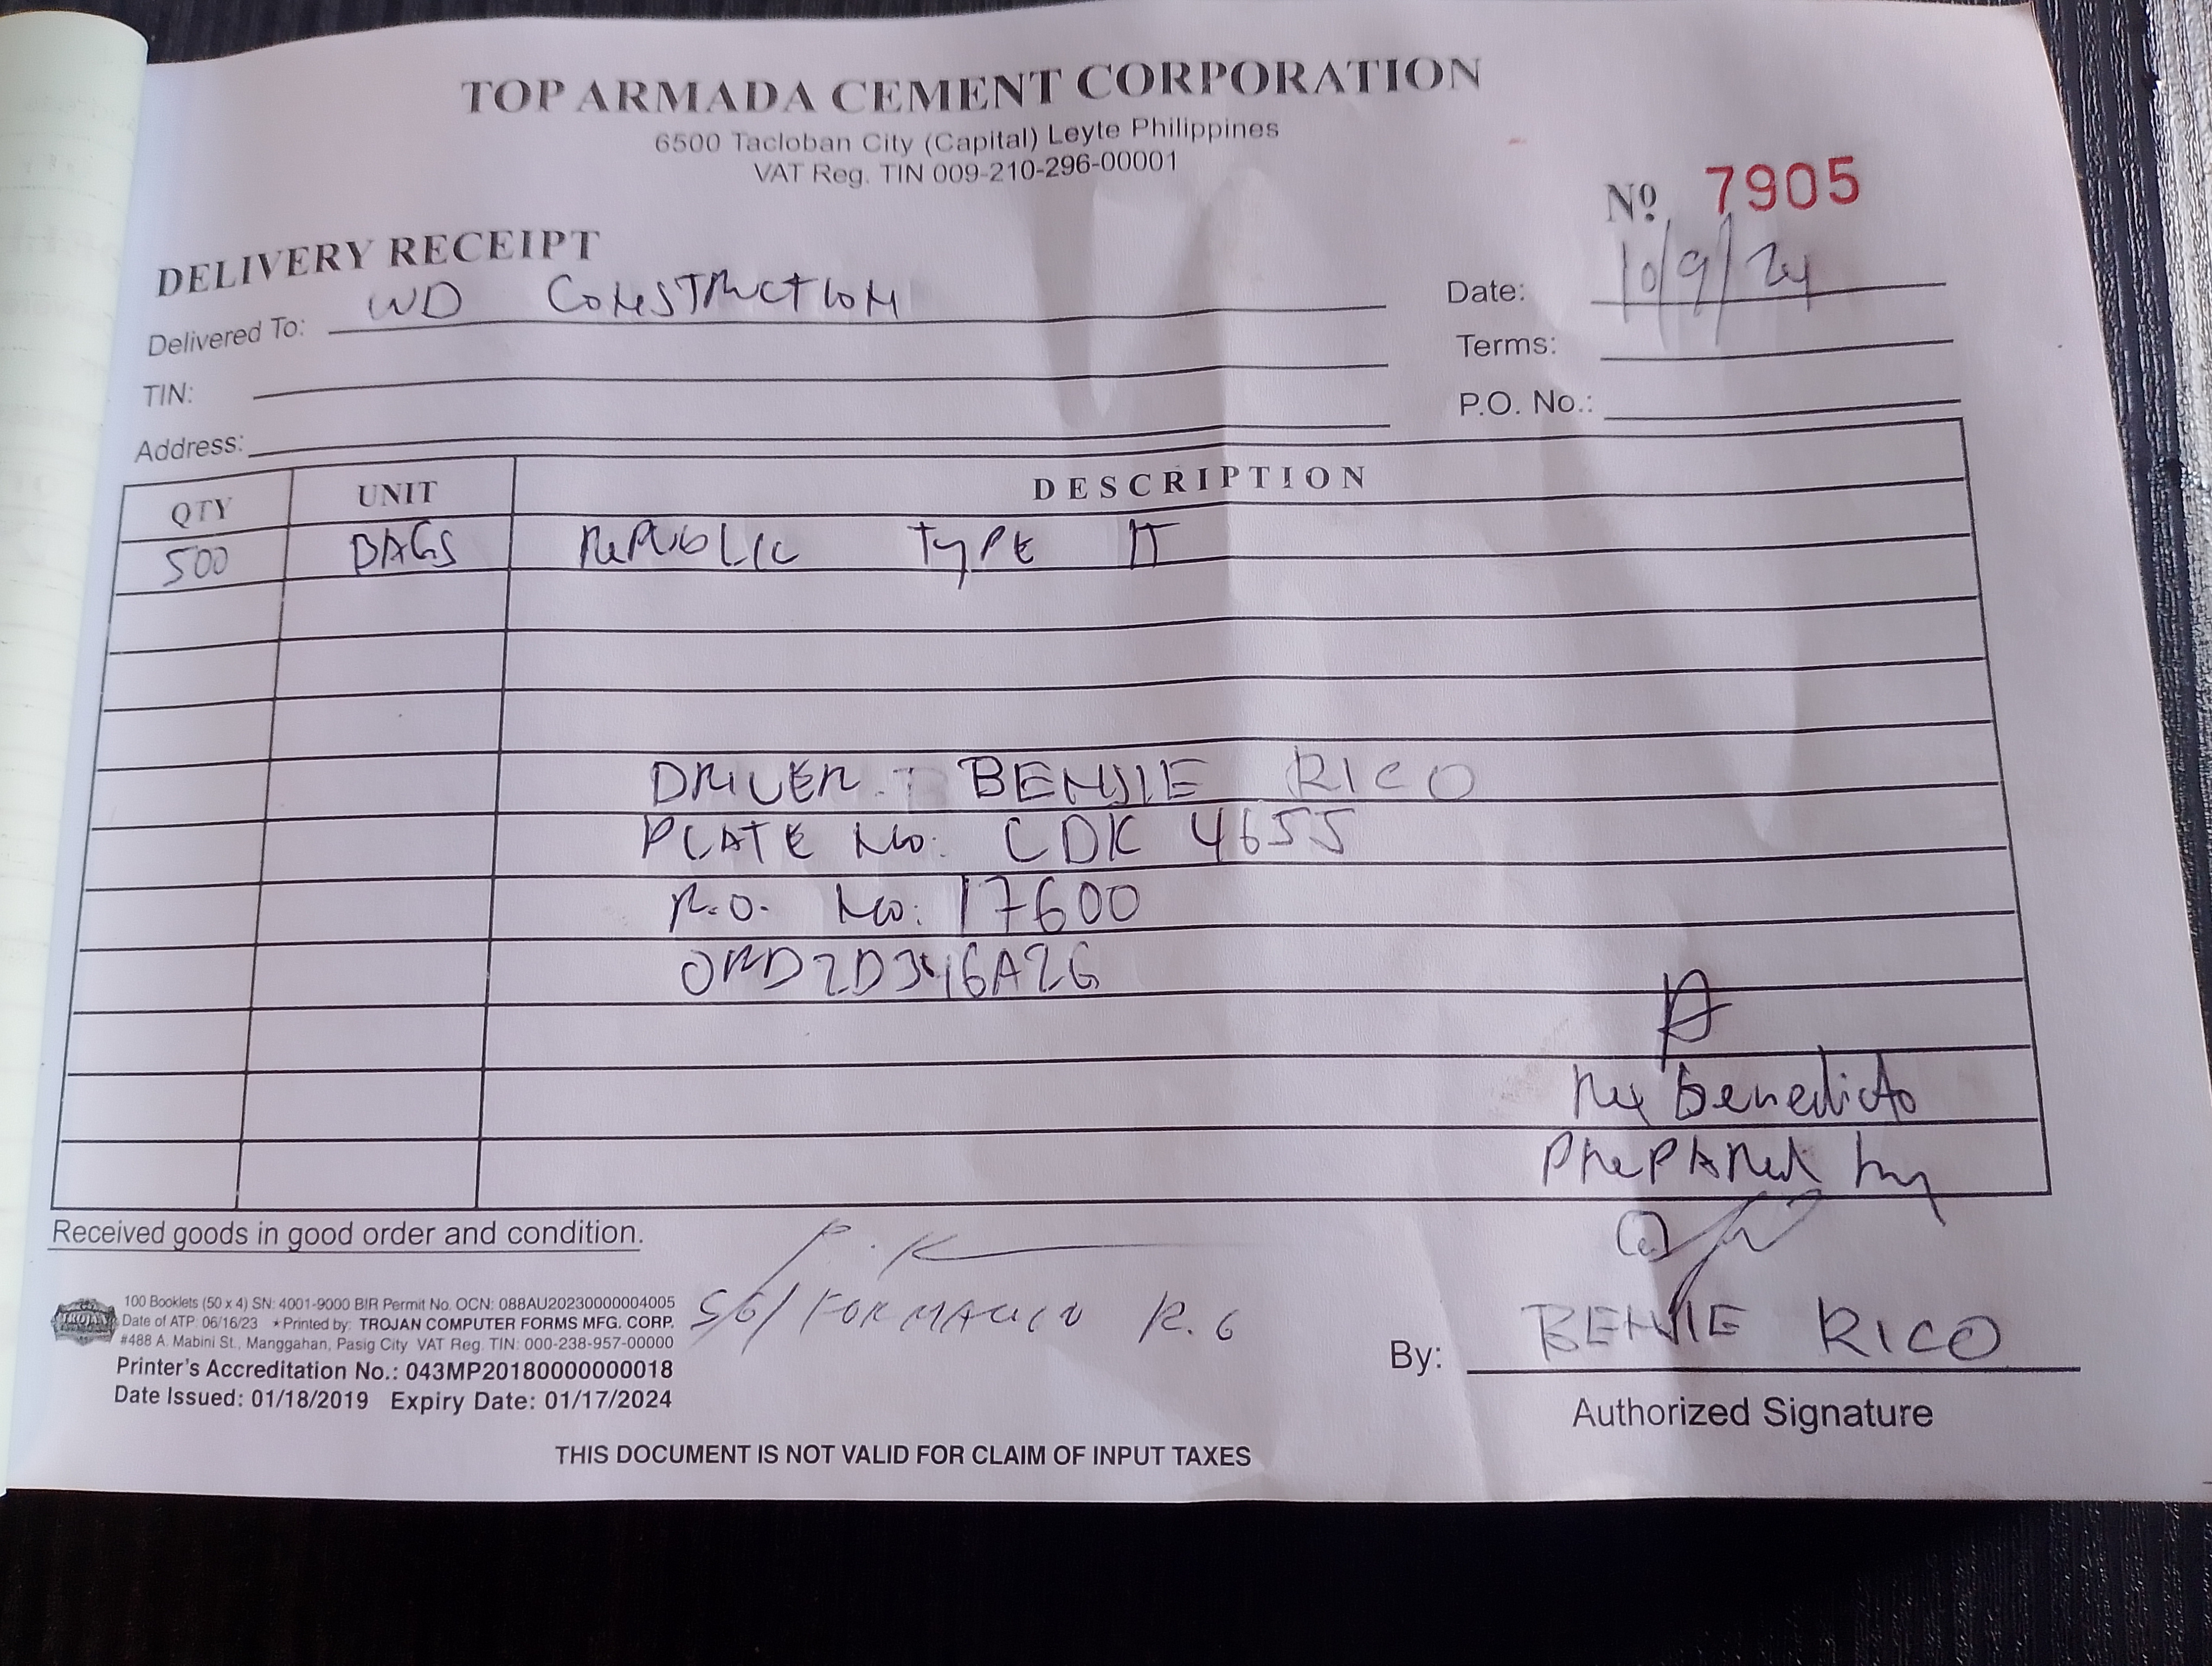 TOP ARMADA CEMENT CORPORATION
6500 Tacloban City (Capital) Leyte Philippines
VAT Reg. TIN 009-210-296-00001
Nº 7905
DELIVERY RECEIPT
Delivered To: WD CONSTRUCTION
Date: 10/9/24
TIN:
Terms:
Address:
P.O. No.:
QTY UNIT DESCRIPTION
500 BAGS REPUBLIC TYPE IT
DRIVER: BENJIE RICO
PLATE No: CDK 4655
R.O. No: 17600
Rex Benedicto
PREPARED by
Received goods in good order and condition.
S/G/ R. G
100 Booklets (50 x 4) SN: 4001-9000 BIR Permit No. OCN: 088AU20230000004005
Date of ATP: 06/16/23 ★Printed by: TROJAN COMPUTER FORMS MFG. CORP.
#488 A. Mabini St., Manggahan, Pasig City VAT Reg. TIN: 000-238-957-00000
TROJAN
Printer's Accreditation No.: 043MP20180000000018
Date Issued: 01/18/2019 Expiry Date: 01/17/2024
By: BENJIE RICO
Authorized Signature
THIS DOCUMENT IS NOT VALID FOR CLAIM OF INPUT TAXES